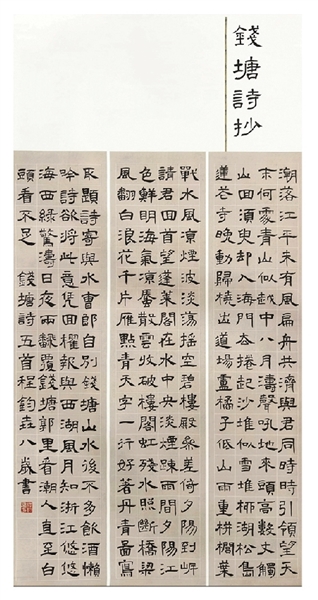 錢塘詩抄
潮落江平未有風扁舟共濟與君同時時引領望天
末何處青山似越中八月濤聲吼地來頭高數丈觸
山回須臾却入海門去捲起沙堆似雪堆柳湖松島
蓮花寺晚動歸橈出道場盧橘子低山雨重栟櫚葉
戰水風涼煙波淡蕩搖空碧樓殿參差倚夕陽到岸
請君回首望蓬萊閣在水中央淡煙疎雨間夕陽江
色鮮明海氣涼蜃散雲收破樓閣虹殘水照斷橋梁
風翻白浪花千片雁點青天字一行好著丹青圖寫
取題詩寄與水曹郎自別錢塘山水後不多飲酒懶
吟詩欲將此意憑回櫂報與西湖風月知浙江悠悠
海西綠驚濤日夜兩翻覆錢塘郭里看潮人直至白
頭看不足 錢塘詩五首程鈞垚八歲書